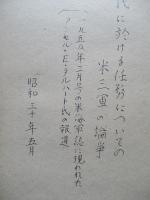 代に於ける任務についての
米三軍の論争
一九五五年二月号の米海軍誌に現われた
アンセル・E・タルバート氏の報道
昭和三十年五月